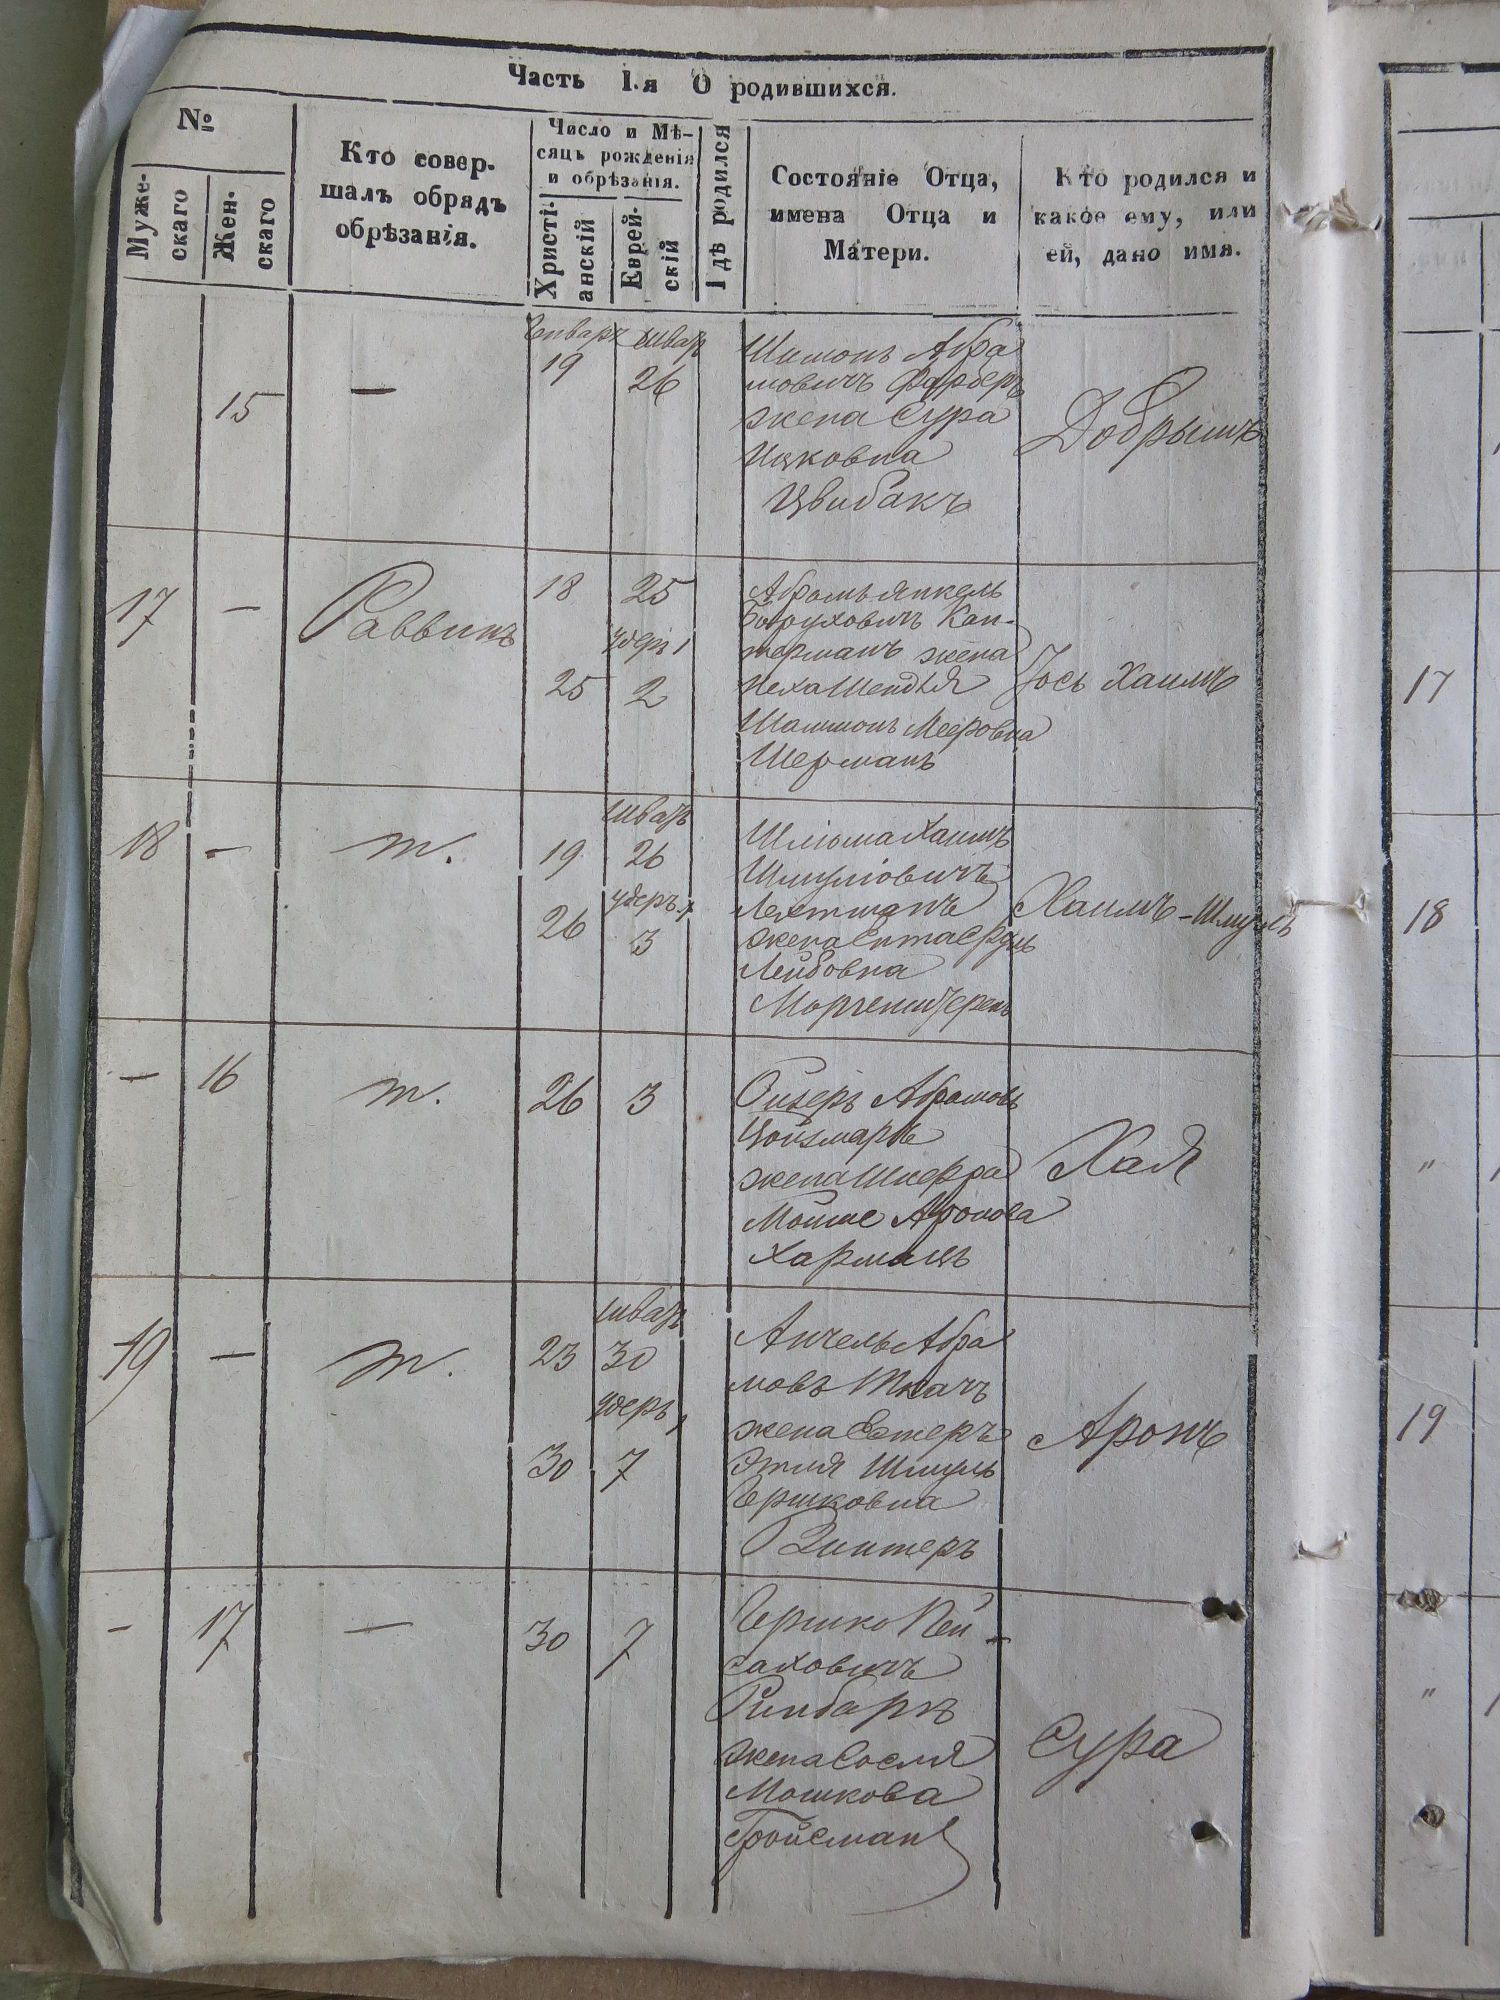 Часть I.я О родившихся.
№
Муже-
скаго
Жен-
скаго
Кто совер-
шалъ обрядъ
обрѣзанія.
Число и Мѣ-
сяцъ рожденія
и обрѣзанія.
Христі-
анскій
Еврей-
скій
Гдѣ родился
Состояніе Отца,
имена Отца и
Матери.
Кто родился и
какое ему, или
ей, дано имя.
15
—
Генваръ
19
шваръ
26
Шимонъ Абра
мовичъ Фарберъ
жена Сура
Ицковна
Цвибакъ
Добрышъ
17
—
Раввинъ
18
25
25
2
Абрамъ Янкель
Боруховичъ Кан-
терманъ жена
Неха Шендля
Мееровна
Шерманъ
Іось Хаимъ
18
—
т.
19
26
шваръ
26
3
Шліома Хаимъ
Шмуліовичъ
Лехтманъ
жена
Лейбовна
Хаимъ-Шмуль
—
16
т.
26
3
Ойзеръ Абрамовъ
Цойзмаръ
жена
Мошне Аронова
Хармацъ
Хая
19
—
т.
23
30
шваръ
30
7
Анчель Абра
мовъ Ткачъ
жена Естеръ
Этля Шмуль
Гершковна
Винтеръ
Аронъ
—
17
—
30
7
Гершко Пей-
саховичъ
Ринбаръ
жена Сосля
Мошкова
Гройсман
Сура
17
18
"
19
"